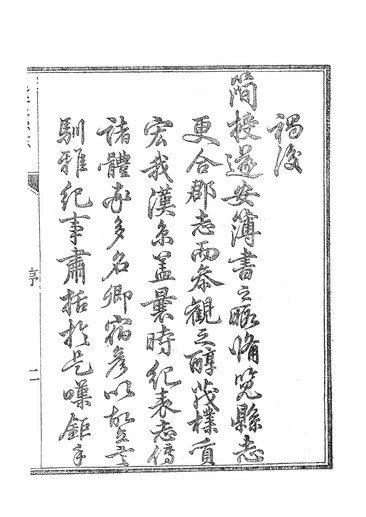 福後
簡授遂安簿書之暇備覽縣志
更合郡志而參觀之醇茂樸質
宏我漢京蓋曩時紀表志傳
諸體多名卿宿彥以故
馴雅紀事肅括於是嘆鉅手
序
二